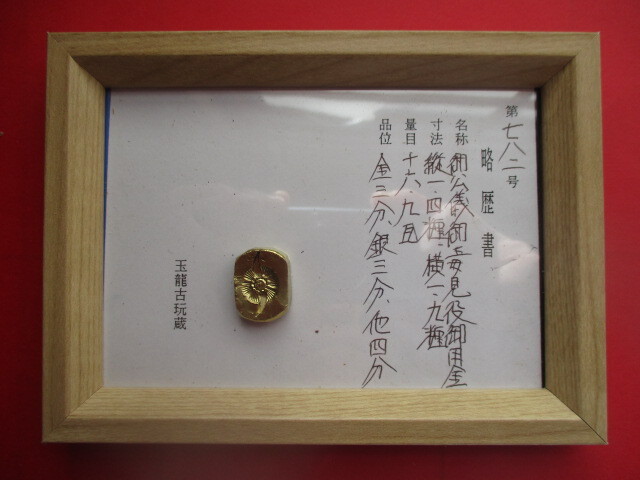 第七八二号
略歴書
名称 御公儀御上毎見役御用金
寸法 縦一.四糎.横一.九糎
量目 十六.九瓦
品位 金三分、銀三分、他四分
玉龍古玩蔵